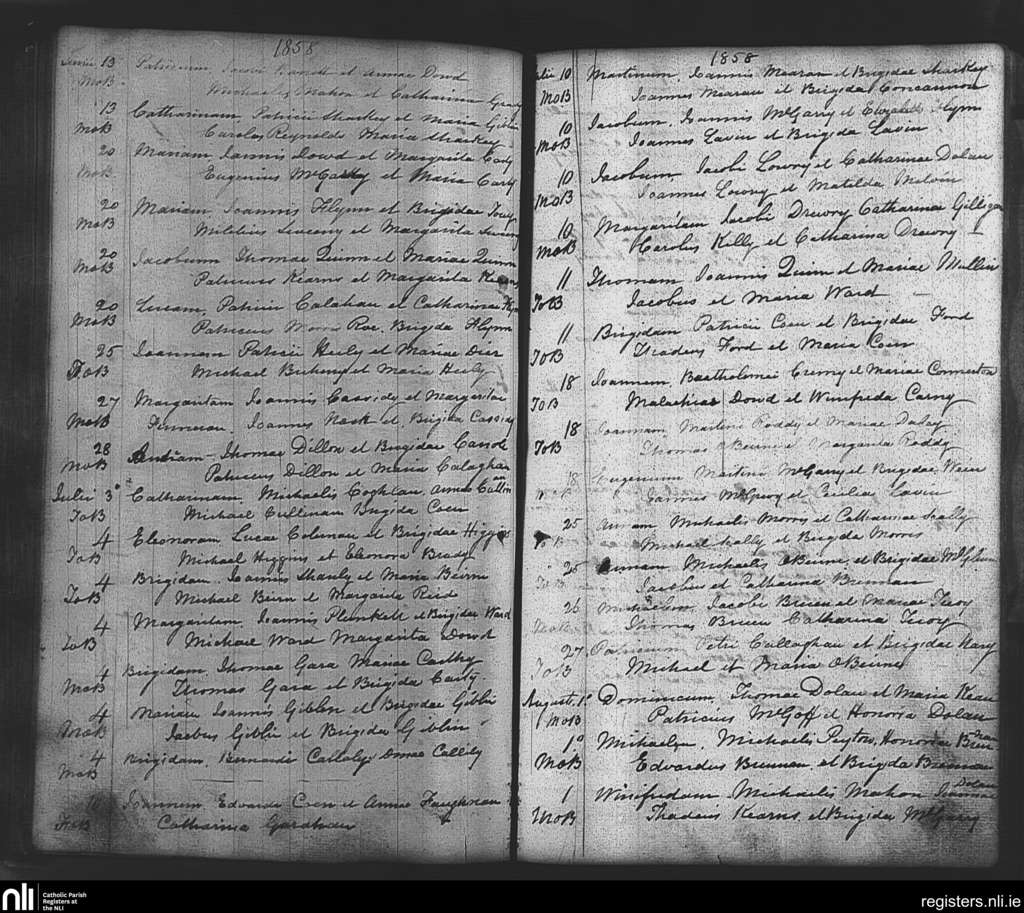 1858
Junii 13 Patricium Jacobi et Annae Dowd
MoB Michaelis Mahon et Catharina Grady
13 Catharinam Patricii Sharkey et Maria Giblin
MoB Carolus Reynolds Maria Sharkey
20 Mariam Joannis Dowd et Margarita Carty
MoB Eugenius McGarry et Maria Carty
20 Mariam Joannis Flynn et Brigidae
MoB et Margarita
20 Jacobum Thomae Quinn et Mariae Quinn
MoB Patricius Kearns et Margarita Kearns
20 Lucam, Patricii Calahan et Catharinae
MoB Patricius Morris Roe, Brigida Flynn
25 Joannam Patricii Heily et Mariae Dier
ToB Michael et Maria Heily
27 Margaritam Joannis Cassidy et Margaritae
MoB Finneran, Joannes Nook et Brigida Cassidy
28 Thomae Dillon et Brigidae
MoB Patricius Dillon et Maria Calaghan
Julii 3° Catharinam, Michaelis Coghlan, Annae Cullinan
ToB Michael Cullinan Brigida Coen
4 Eleonoram Lucae Coleman et Brigidae Higgins
ToB Michael Higgins et Elenora Brady
4 Brigidam, Joannis Shanly et Maria Beirn
ToB Michael Beirn et Margarita Reid
4 Margaritam Joannis Plunkett et Brigidae Ward
ToB Michael Ward Margarita Dowd
4 Brigidam Thomae Gara Mariae Carthy
MoB Thomas Gara et Brigida Carty
4 Mariam Joannis Giblin et Brigidae Giblin
MoB Jacobus Giblin et Brigida Giblin
4 Brigidam, Bernardi Callaly Annae Callily
MoB
Joannem Edvardi Coen et Annae Faughnan
ToB Catharina
1858
10 Martinum, Joannis Mearan et Brigidae Sharkey
MoB Joannes Mearan et Brigida Concannon
10 Jacobum, Joannis McGarry et Elizabeth Flynn
MoB Joannes Lavin et Brigida Lavin
10 Jacobum Jacobi Lowry et Catharinae Dolan
MoB Joannes Lowry et Matilda
10 Margaritam Jacobi Drewry Catharinae Gilligan
MoB Carolus Kelly et Catharina Drewry
11 Thomam, Joannis Quinn et Mariae Mullin
ToB Jacobus et Maria Ward
11 Brigidam Patricii Coen et Brigidae Ford
ToB Thadeus Ford et Maria Coen
18 Joannem, Bartholomei et Mariae
ToB Malachias Dowd et Winifreda Carny
18 Joannam, Martini Roddy et Mariae
ToB Thomas OBeirne Margarita Roddy
18 Eugenium Martini McGarry et Brigidae Weir
MoB Joannes McGarry et Cecilia Lavin
25 Michaelis Morris et Catharinae Scally
ToB Michael Scally et Brigida Morris
25 Michaelis OBeirne, et Brigidae
ToB Jacobus et Catharina Brennan
26 Michaelem, Jacobi et Mariae
MoB Thomas Catharina
27 Patricium Petri Callaghan et Brigidae Hary
ToB Michael et Maria OBeirne
Augusti, 1° Dominicum, Thomae Dolan et Maria
MoB Patricius McGoff et Honoria Dolan
1° Michaelem, Michaelis Peyton, Honoriae Brennan
MoB Edvardus Brennan et Brigida Brennan
1 Winifredam Michaelis Mahon Joannae Dolan
MoB Thadeus Kearns, et Brigida McGarry
nli Catholic Parish
Registers at
the NLI
registers.nli.ie